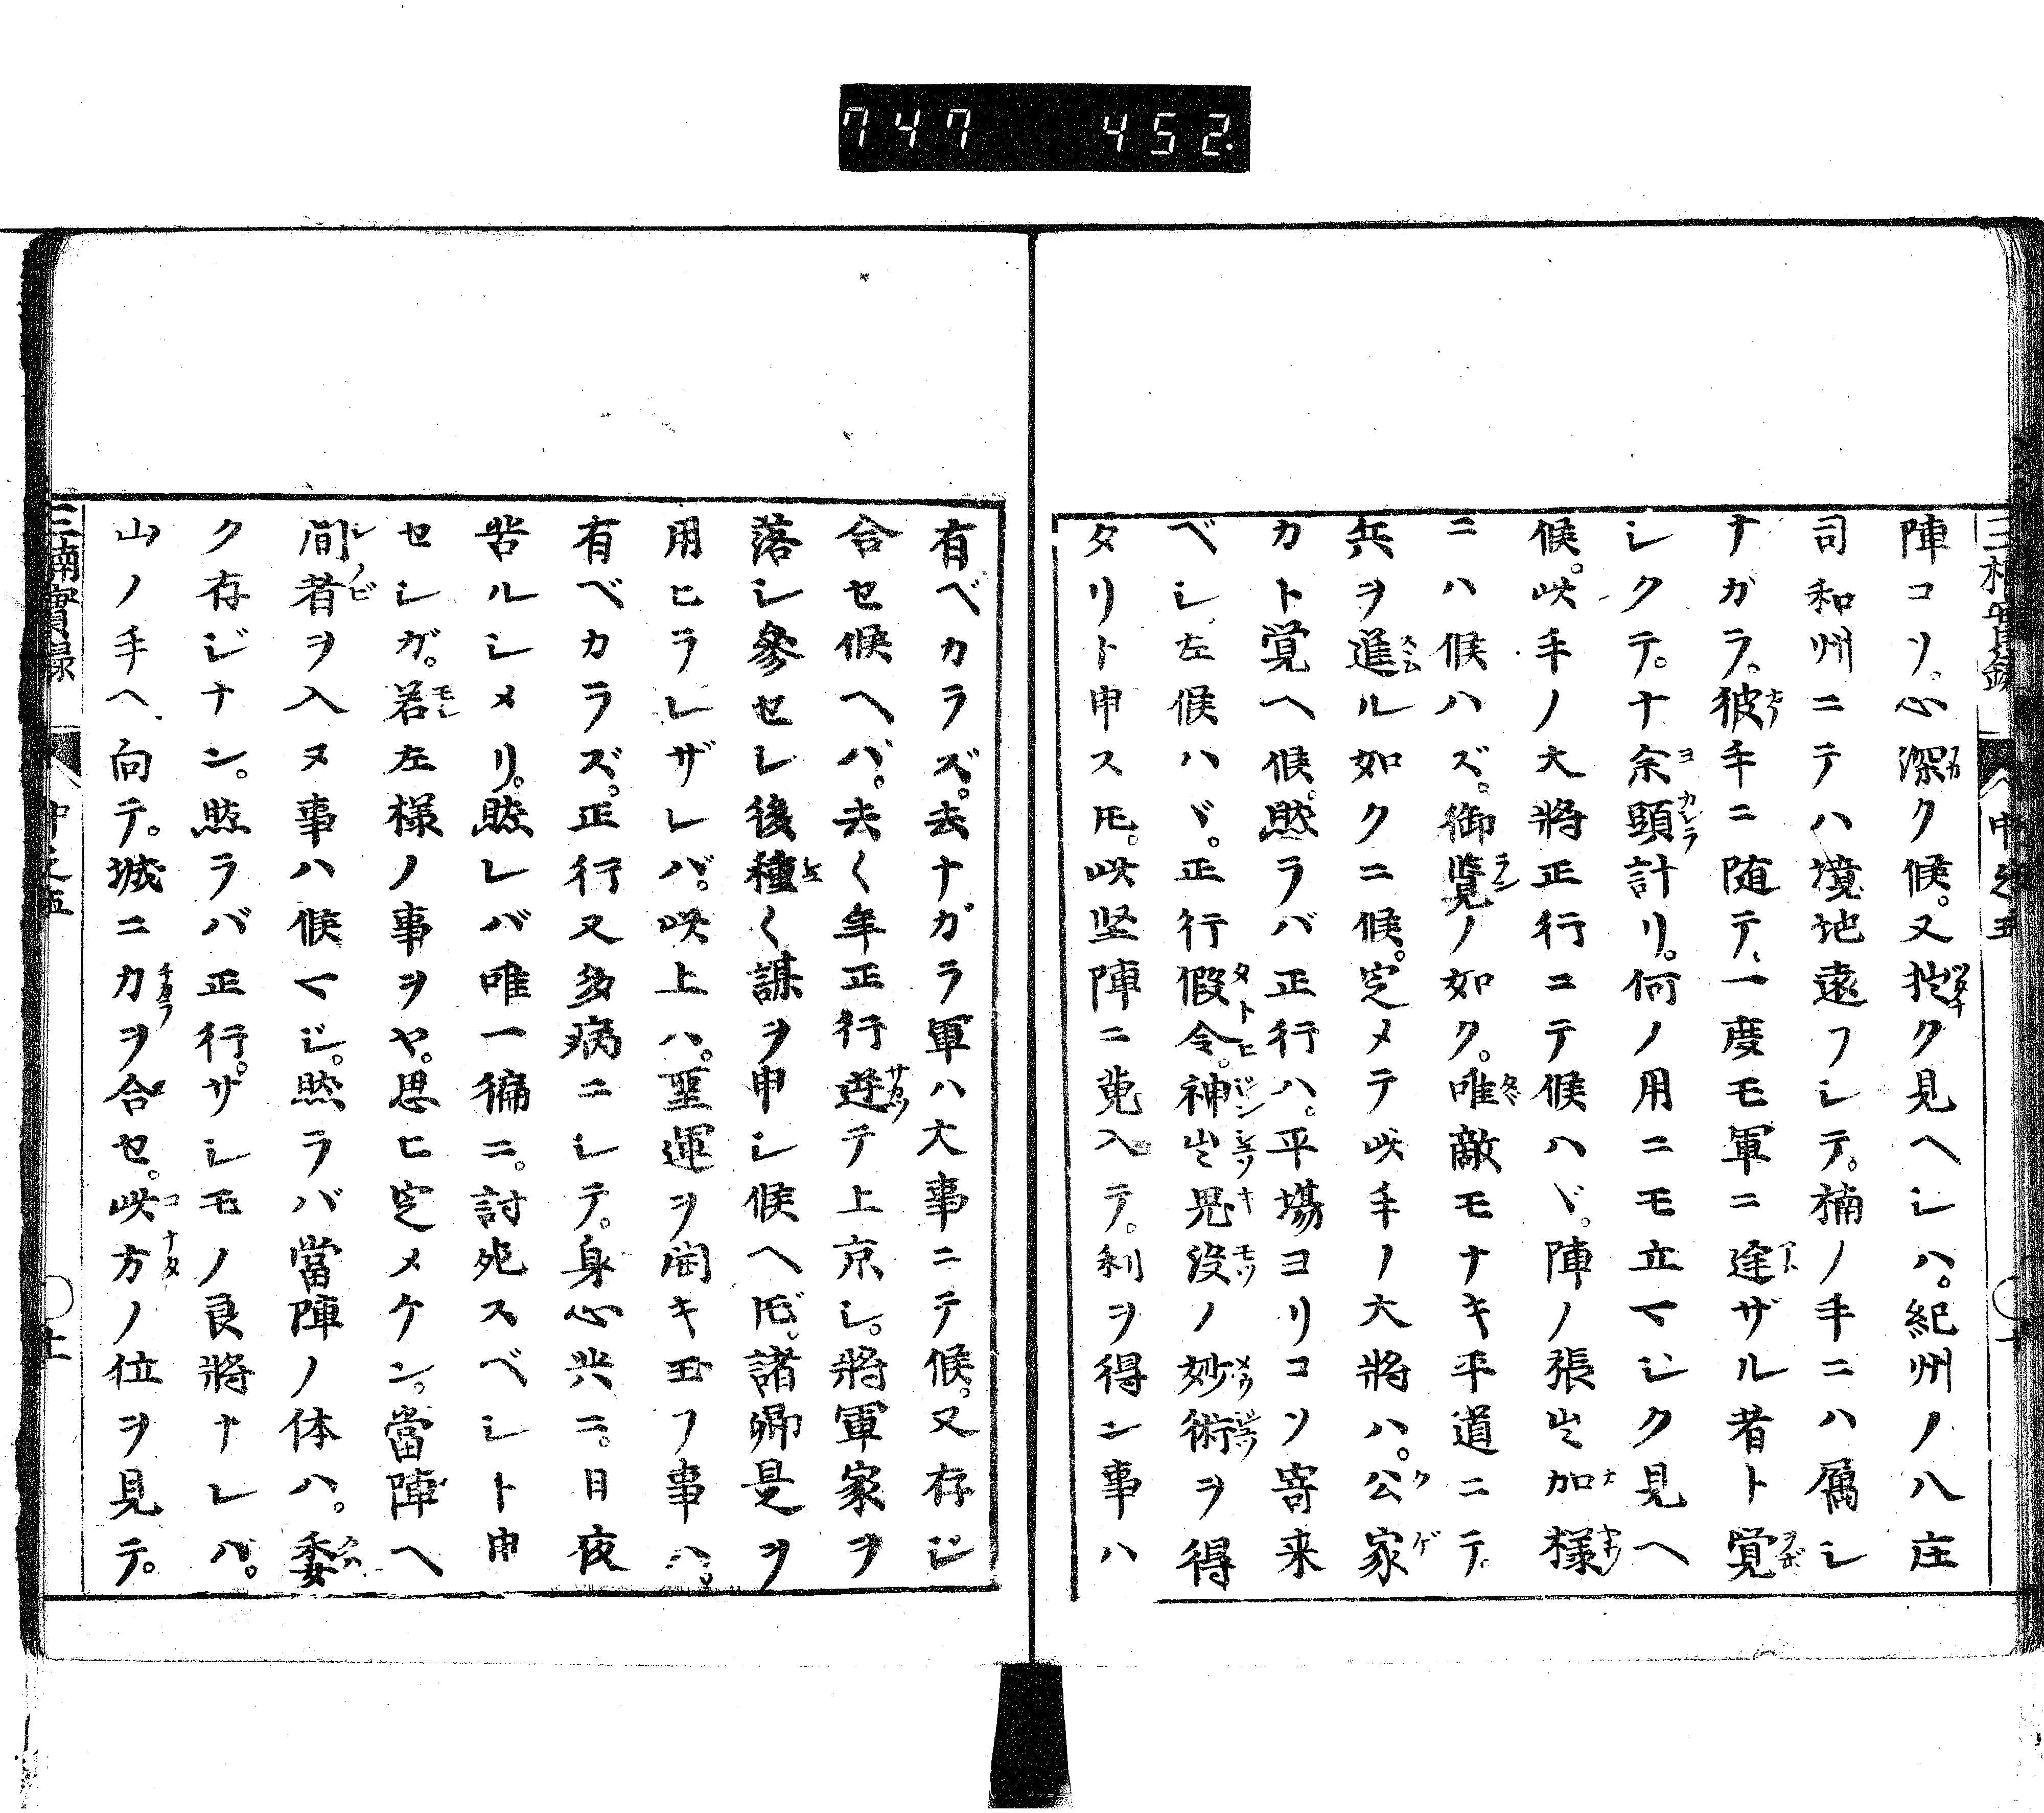 747 452.
陣コソ。心深ク候。又抛ク見ヘシハ。紀州ノ八庄
司和州ニテハ境地遠フシテ。楠ノ手ニハ属シ
ナガラ。彼手ニ随テ、一度モ軍ニ逢ザル者ト覚
シクテ。十余頭計リ。何ノ用ニモ立マジク見ヘ
候。此手ノ大將正行ニテ候ハヾ。陣ノ張出加様
ニハ候ハズ。御覧ノ如ク。唯敵モナキ平道ニテ
兵ヲ進ル如クニ候。定メテ此手ノ大將ハ。公家
カト覚ヘ候。然ラバ正行ハ。平塲ヨリコソ寄来
ベシ、左候ハヾ。正行假令。神出鬼没ノ妙術ヲ得
タリト申ス𪜈。此堅陣ニ蒐入テ。利ヲ得ン事ハ
有ベカラズ。去ナガラ軍ハ大事ニテ候。又存ジ
合セ候ヘバ。去〱年正行遊テ上京シ。將軍家ヲ
落シ參セシ後種〱謀ヲ申シ候ヘ𪜈。諸卿是ヲ
用ヒラレザレバ。此上ハ。聖運ヲ開キ玉フ事ハ。
有ベカラズ。正行又多病ニシテ。身心共ニ。日夜
苦ルシメリ。然レバ唯一徧ニ。討死スベシト申
セシガ。若左様ノ事ヲヤ。思ヒ定メケン。當陣ヘ
間者ヲ入ヌ事ハ候マジ。然ラバ當陣ノ体ハ。委
ク存ジナン。然ラバ正行。ザシモノ良將ナレバ。
山ノ手ヘ、向テ。城ニカヲ合セ。此方ノ位ヲ見テ。
三楠實録